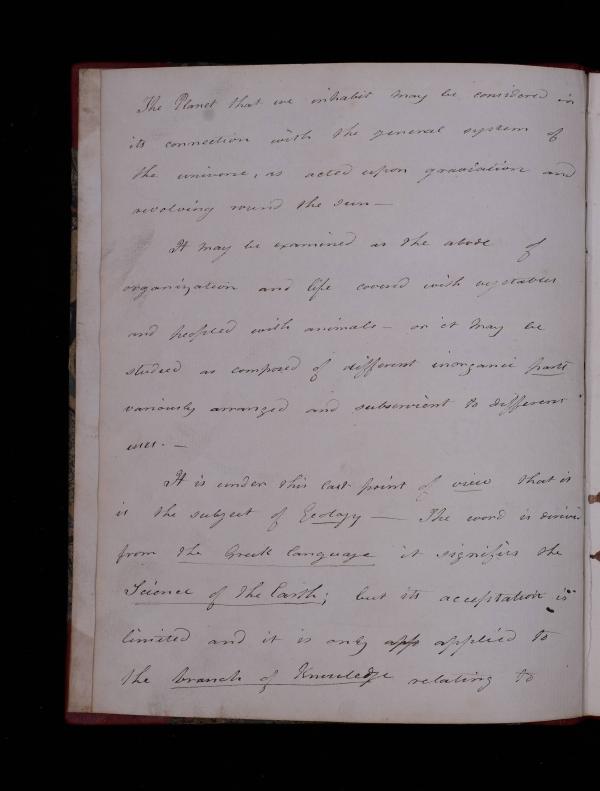 The Planet that we inhabit may be considered in
its connection with the general system of
the universe, as acted upon gravitation and
revolving round the sun —
It may be examined as the abode of
organization and life covered with vegetables
and peopled with animals — or it may be
studied as composed of different inorganic parts
variously arranged and subservient to different
uses. —
It is under this last point of view that it
is the subject of Geology — The word is derived
from the Greek language it signifies the
Science of the Earth; but its acceptation is
limited and it is only app applied to
the branch of Knowledge relating to